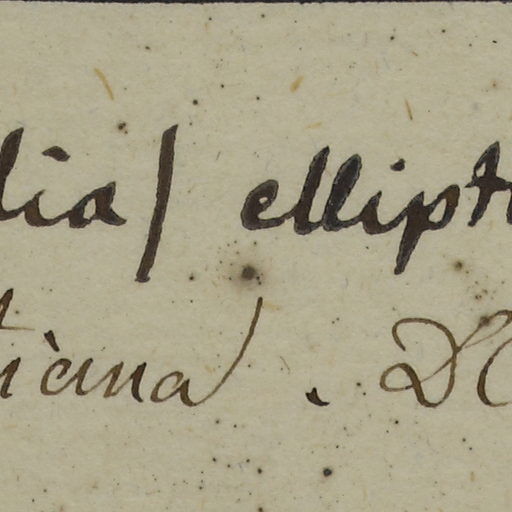 lia/ ellipt
iana . D